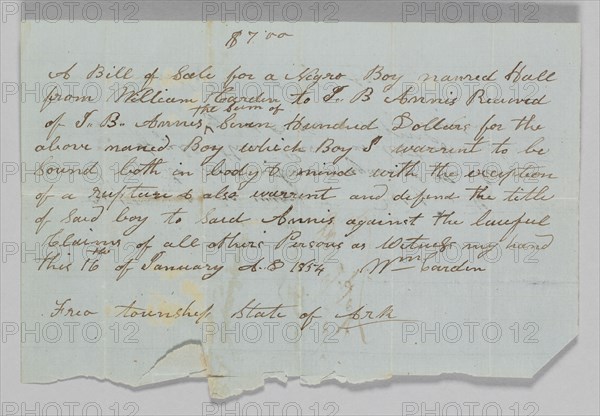 $7.00
A Bill of Sale for a Negro Boy named Hall
from William Carden to J. B Annis Received
of J. B. Annis the Sum of Seven Hundred Dollars for the
above named Boy which Boy I warrent to be
Sound both in body & mind with the exception
of a rupture & also warrent and defend the title
of Said boy to Said Annis against the lawful
Claims of all others Persons as Witness my hand
this 16th of January A. D 1854 Wm Carden
Freo township State of Ark
PHOTO12